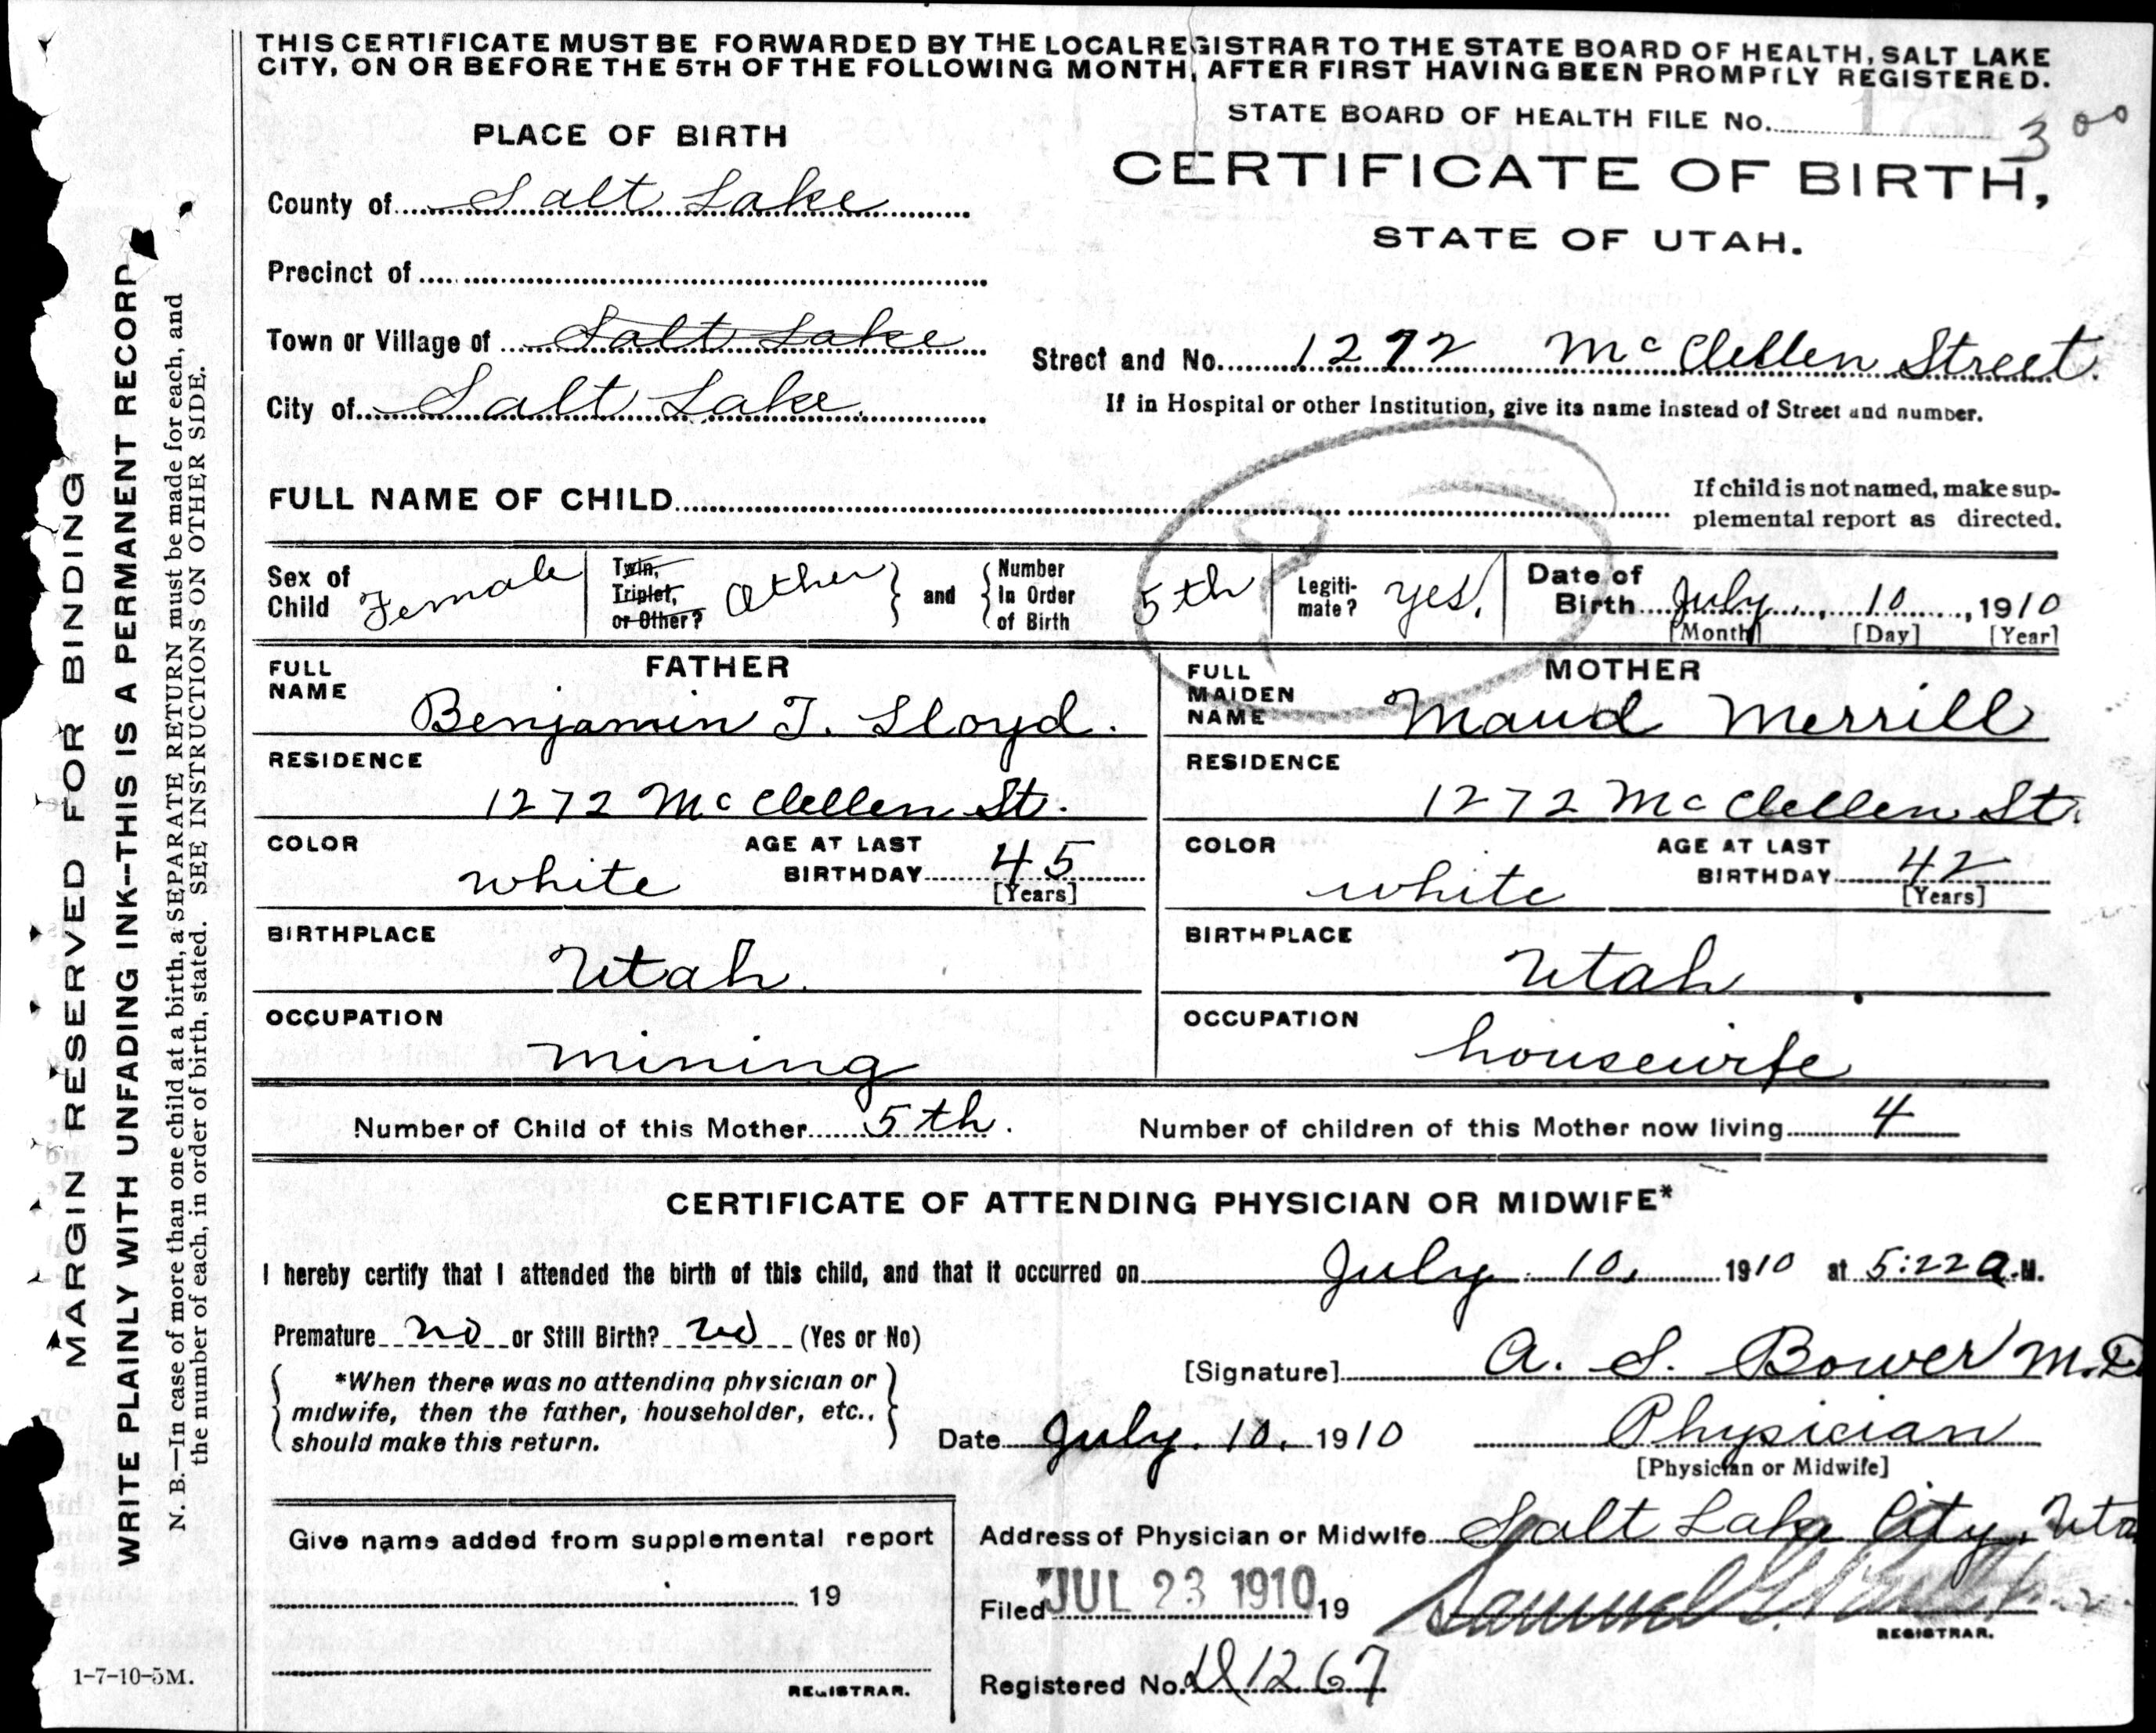 THIS CERTIFICATE MUST BE FORWARDED BY THE LOCAL REGISTRAR TO THE STATE BOARD OF HEALTH, SALT LAKE
CITY, ON OR BEFORE THE 5TH OF THE FOLLOWING MONTH, AFTER FIRST HAVING BEEN PROMPTLY REGISTERED.
STATE BOARD OF HEALTH FILE No.
3 00
PLACE OF BIRTH
CERTIFICATE OF BIRTH,
STATE OF UTAH.
County of Salt Lake
Precinct of
Town or Village of Salt Lake
Street and No. 1272 McClellen Street.
City of Salt Lake.
If in Hospital or other Institution, give its name instead of Street and number.
FULL NAME OF CHILD
If child is not named, make sup-
plemental report as directed.
?
Sex of Child Female
Twin, Triplet, or Other? Other and Number In Order of Birth 5th
Legiti-mate? yes.
Date of Birth July 10, 1910
[Month] [Day] [Year]
FATHER
FULL NAME
Benjamin T. Lloyd.
RESIDENCE
1272 McClellen St.
COLOR white AGE AT LAST BIRTHDAY 45
[Years]
BIRTHPLACE
Utah.
OCCUPATION
mining
MOTHER
FULL MAIDEN NAME
Maud Merrill
RESIDENCE
1272 McClellen St.
COLOR white AGE AT LAST BIRTHDAY 42
[Years]
BIRTHPLACE
Utah
OCCUPATION
housewife
Number of Child of this Mother 5th. Number of children of this Mother now living 4
CERTIFICATE OF ATTENDING PHYSICIAN OR MIDWIFE*
I hereby certify that I attended the birth of this child, and that it occurred on July 10, 1910 at 5:22 a.M.
Premature no or Still Birth? no (Yes or No)
*When there was no attending physician or
midwife, then the father, householder, etc.,
should make this return.
[Signature] A. S. Bower M.D
Date July 10, 1910 Physician
[Physician or Midwife]
Give name added from supplemental report
19
REGISTRAR.
Address of Physician or Midwife Salt Lake City, Uta
Filed JUL 23 1910 19 Samuel G.
REGISTRAR.
Registered No. 1267
1-7-10-5M.
MARGIN RESERVED FOR BINDING
WRITE PLAINLY WITH UNFADING INK--THIS IS A PERMANENT RECORD
N. B.—In case of more than one child at a birth, a SEPARATE RETURN must be made for each, and
the number of each, in order of birth, stated. SEE INSTRUCTIONS ON OTHER SIDE.